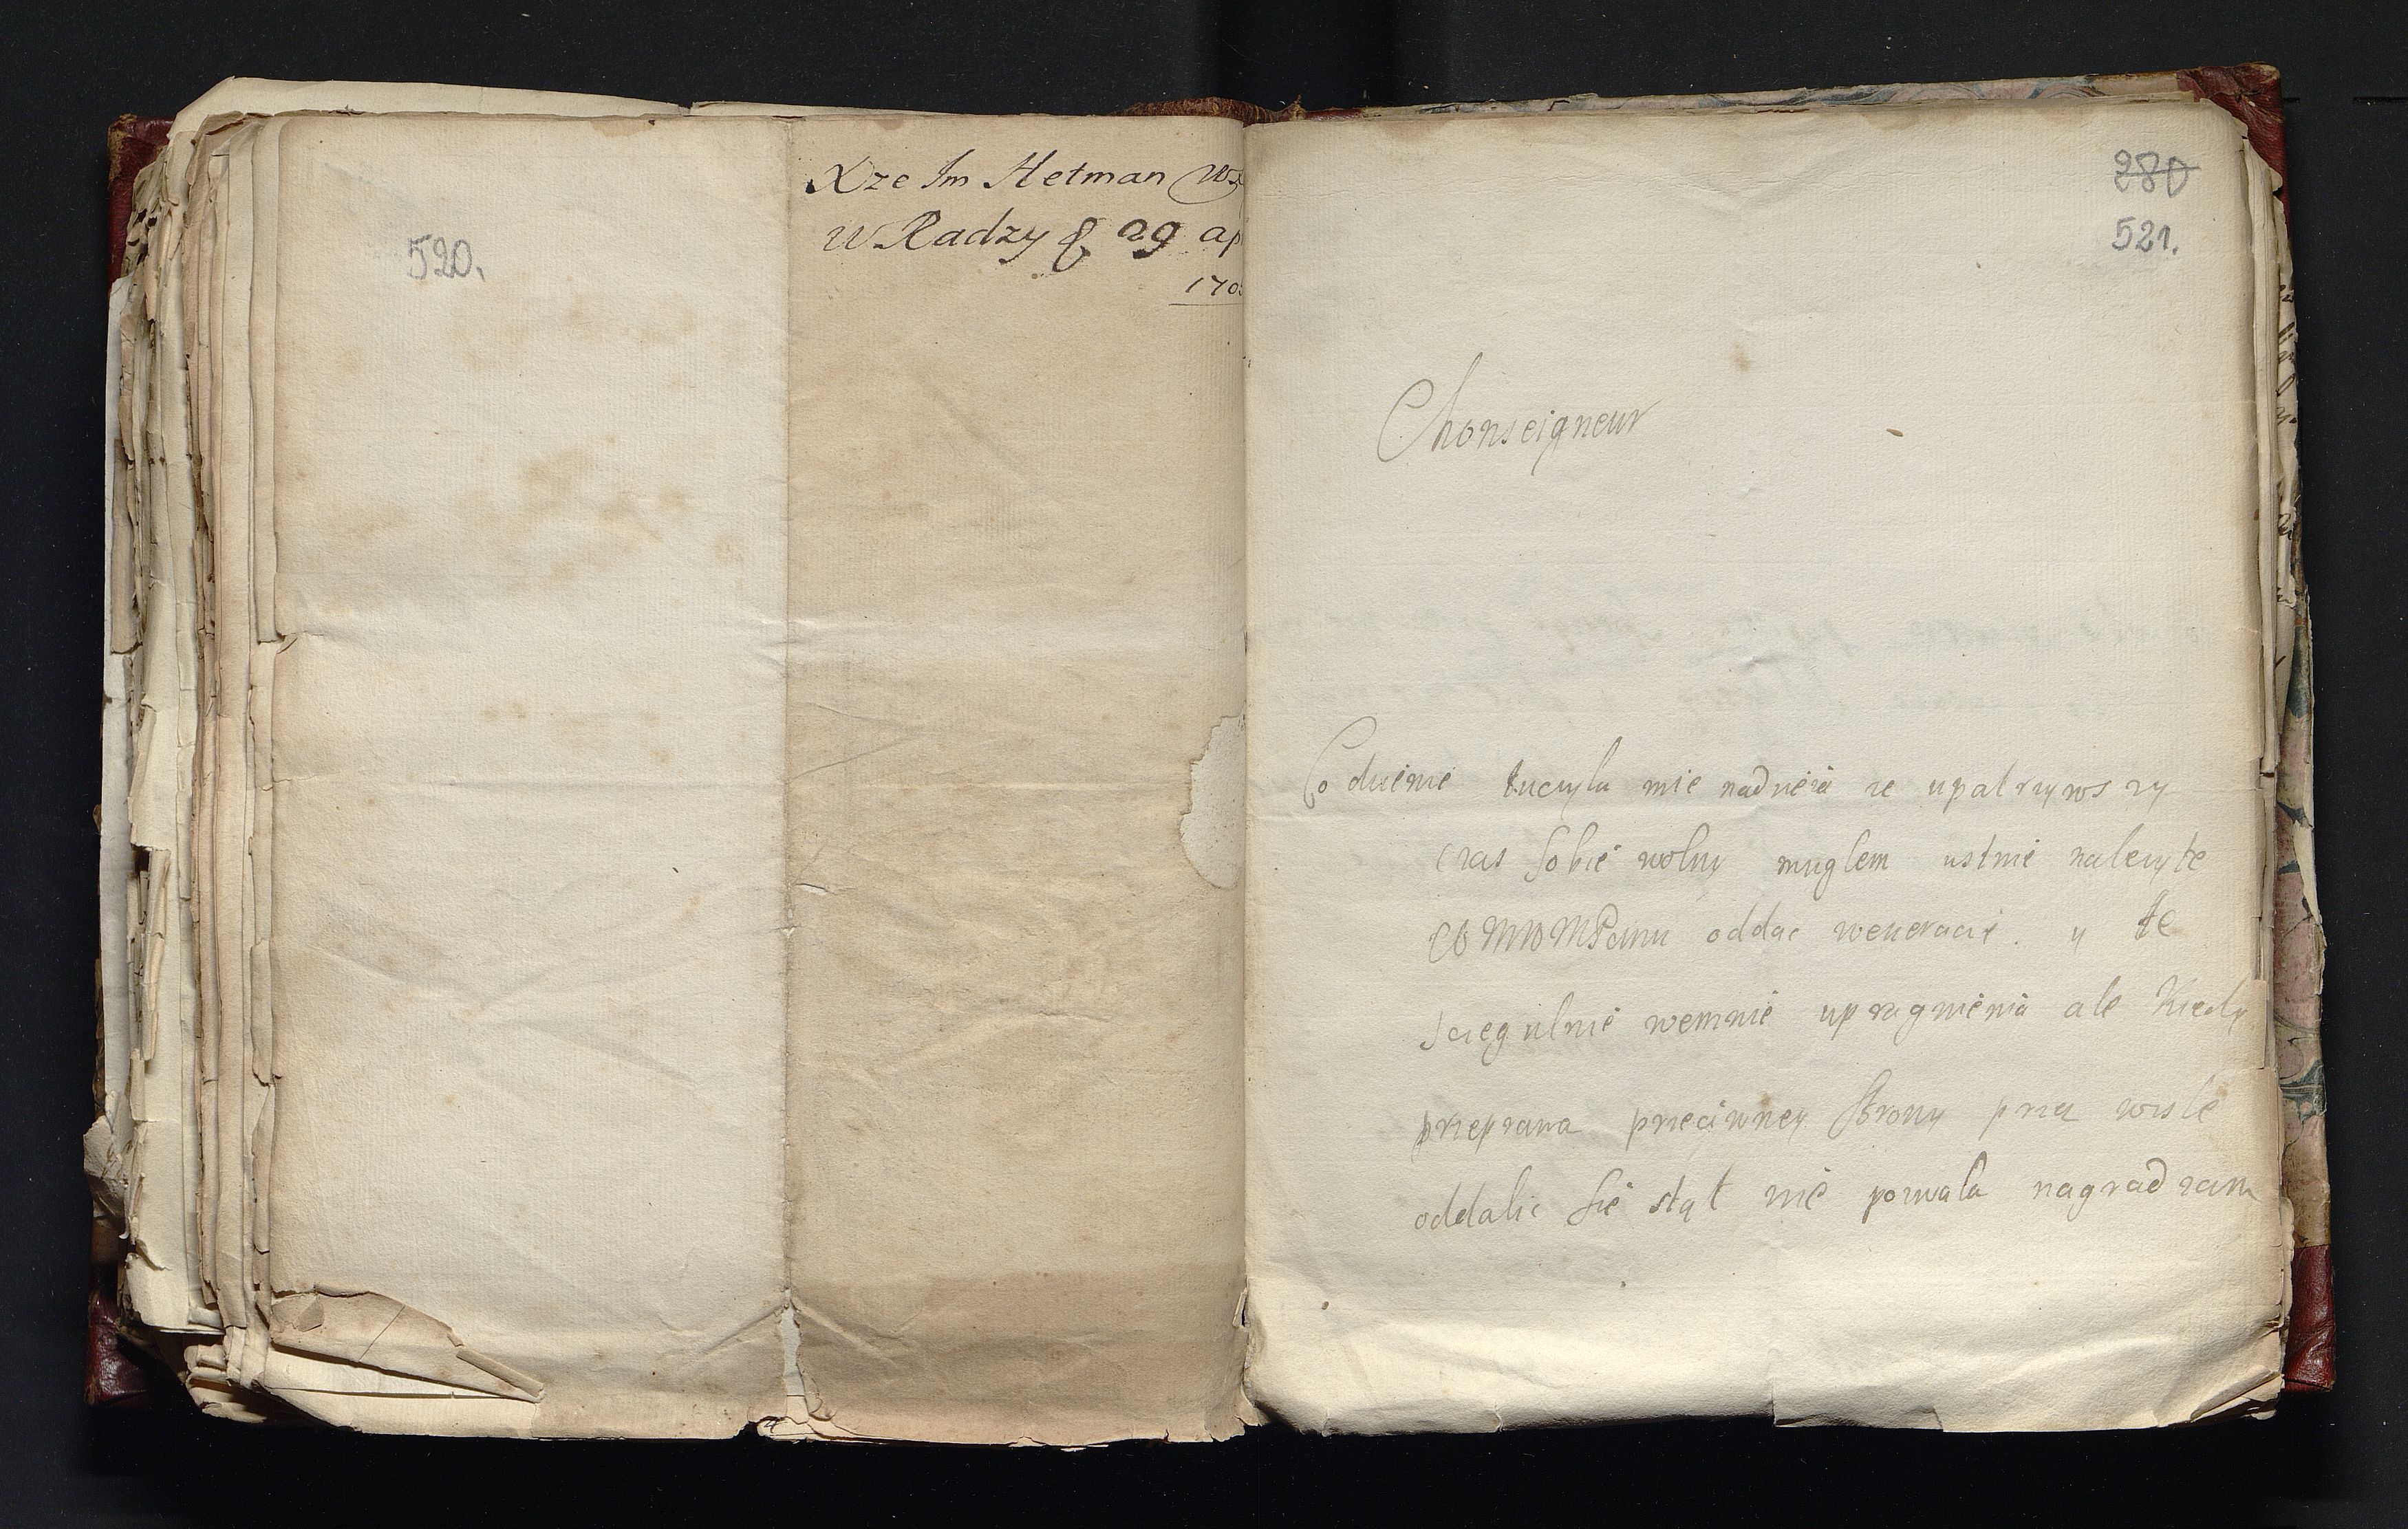 520.
Xze Im Hetman
W Radzy 29 ap
170
280
521.
Monseigneur
Codzienie tuczyla mie nadzieia ze upatrzyws zy
czas sobie wolny muglem ustnie nalezyte
WMWMPanu oddac weneracie. y te
sczegulnie wemnie upragnienia ale Kiedy
przeprawa przeciwney strony przy wisle
oddalic sie stąt nie pozwala nagradzam